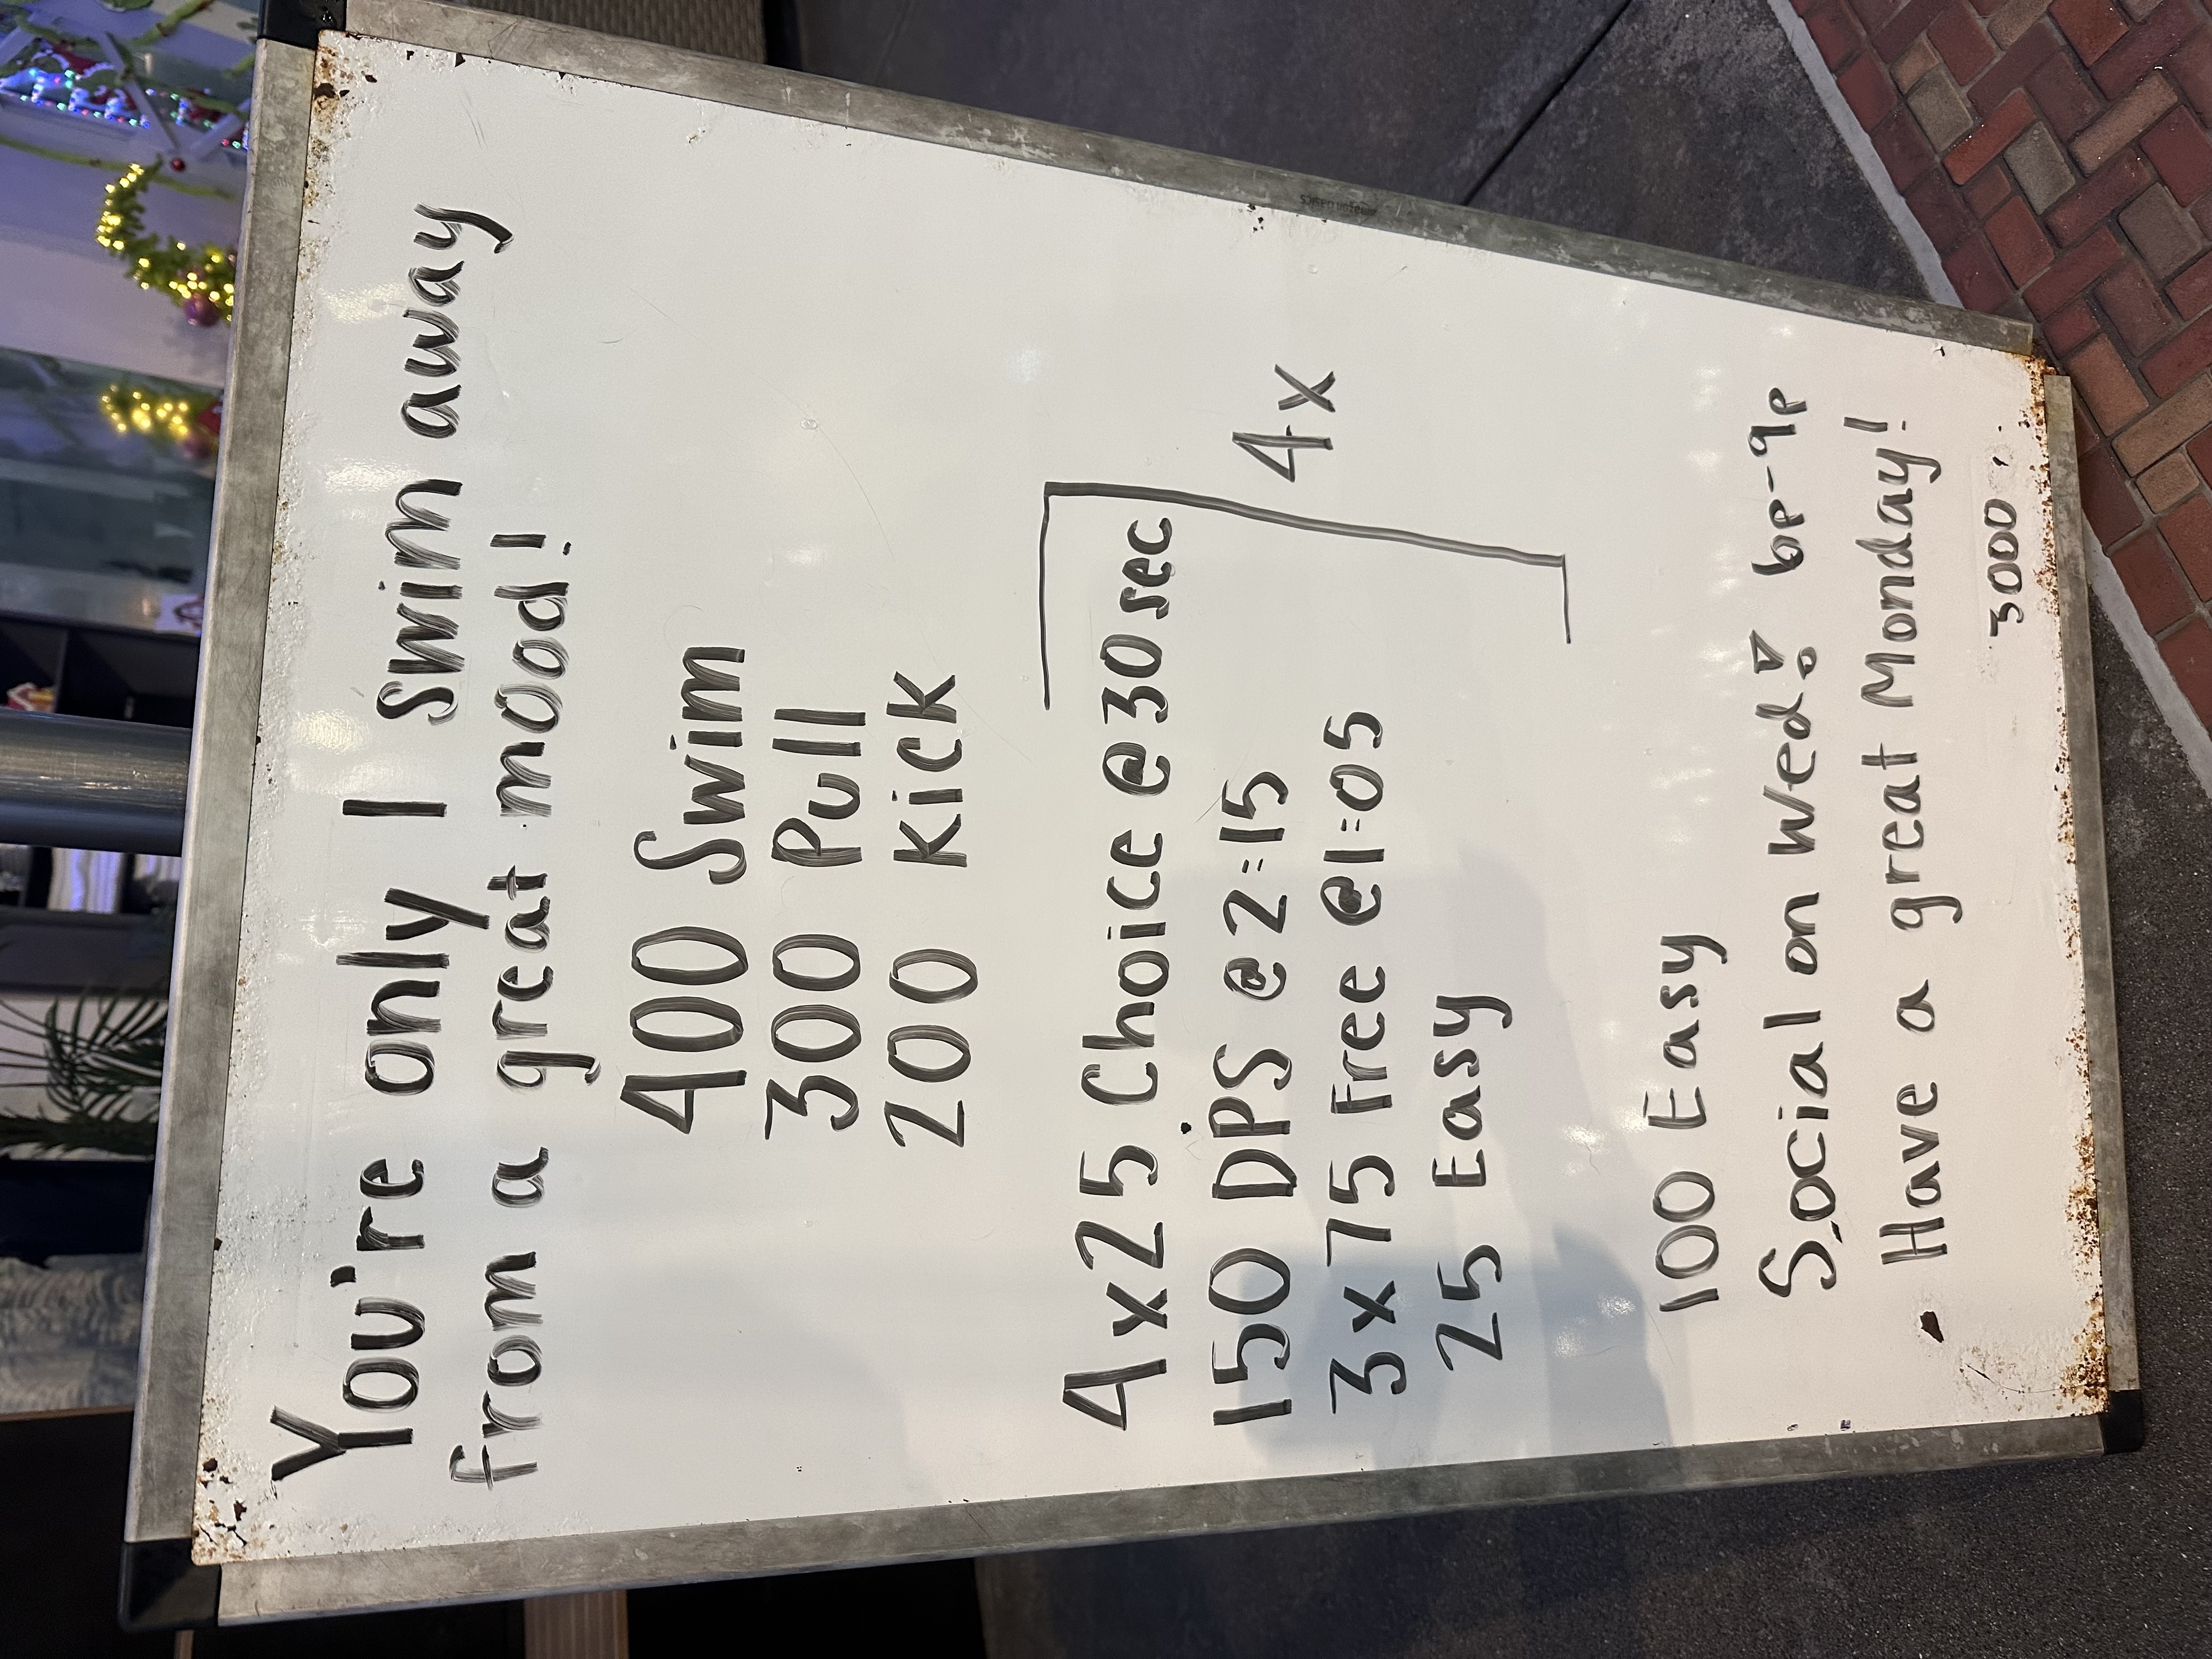 You're only 1 swim away
from a great mood!
400 Swim
300 Pull
200 Kick
4x25 Choice @ 30 sec
150 DPS @ 2:15
3x75 Free @1:05
25 Easy
4x
100 Easy
Social on Wed! 6p-9p
Have a great Monday!
3000
amazon basics